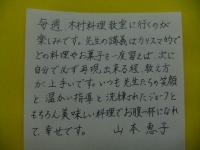 毎週、木村料理教室に行くのが
楽しみです。先生の講義はカリスマ的で
どの料理やお菓子も一度習えば、次に
自分で必ず再現出来る程、教え方
が上手です。いつも先生たちの笑顔
と温かい指導と洗練されたジョークと
もちろん美味しい料理でお腹一杯になれ
て幸せです。
山本恵子